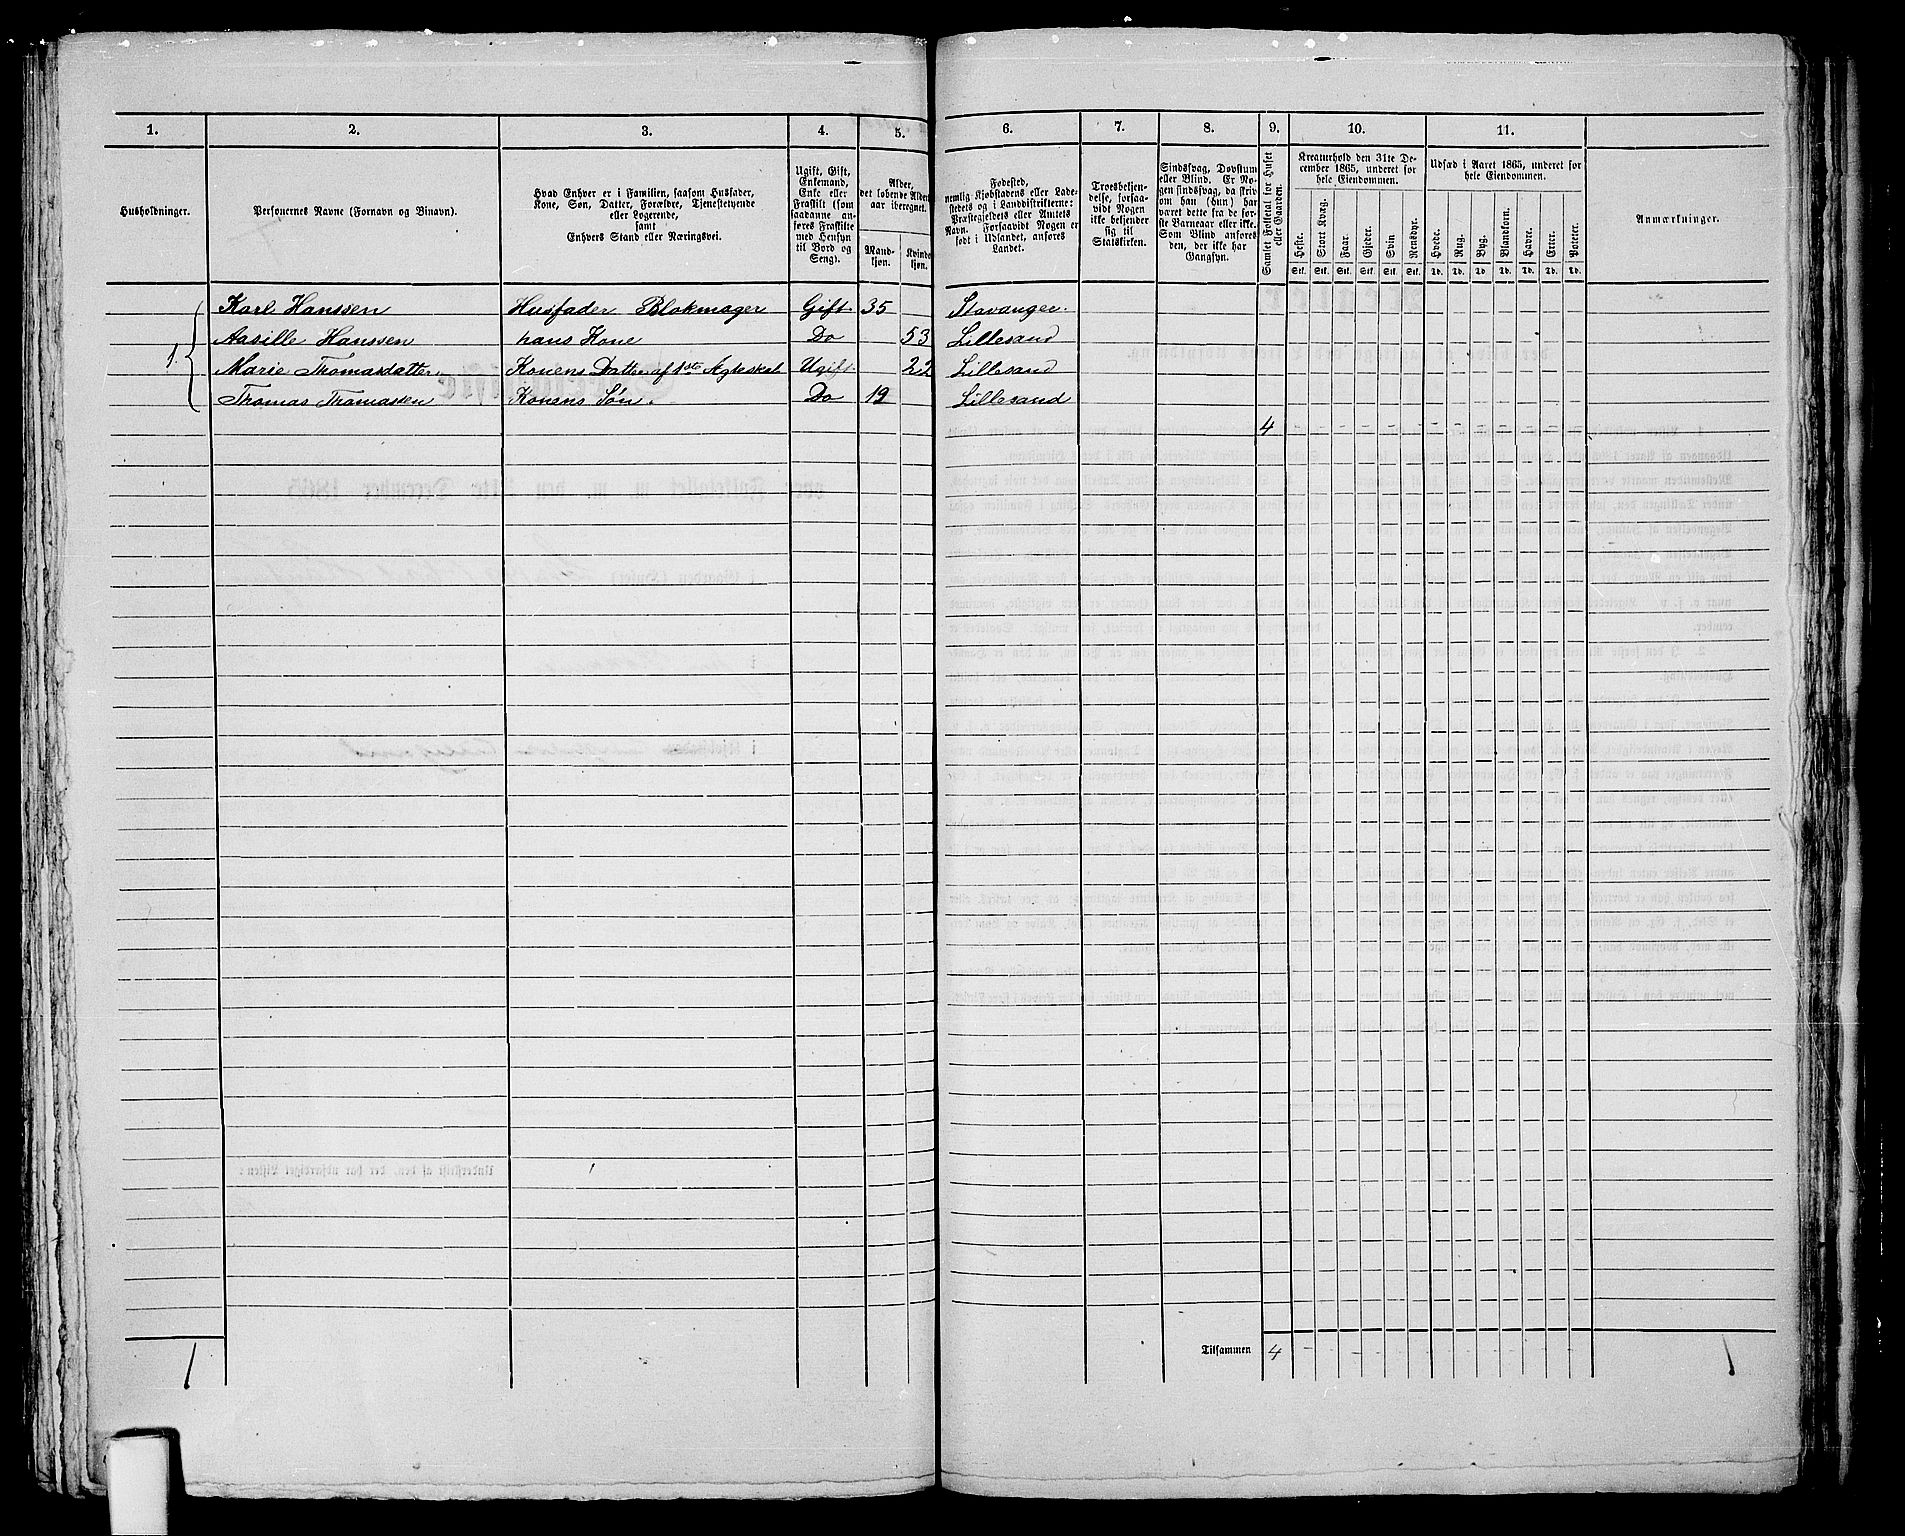 1. 2. 3. 4. 5. 6. 7. 8. 9. 10. 11.
Husholdninger.
Personernes Navne (Fornavn og Binavn).
Hvad Enhver er i Familien, saasom Husfader,
Kone, Søn, Datter, Forældre, Tjenestetyende
eller Logerende,
samt
Enhvers Stand eller Næringsvei.
Ugift, Gift,
Enkemand,
Enke eller
Fraskilt (som
saadanne an-
føres Fraskilte
med Hensyn
til Bord og
Seng).
Alder,
det løbende Alders-
aar iberegnet.
Mand-
kjøn.
Kvinde-
kjøn.
Fødested,
nemlig Kjøbstadens eller Lade-
stedets og i Landdistrikterne:
Præstegjeldets eller Amtets
Navn. Forsaavidt Nogen er
født i Udlandet, anføres
Landet.
Troesbekjen-
delse, forsaa-
vidt Nogen
ikke bekjender
sig til
Statskirken.
Sindssvag, Døvstum
eller Blind. Er No-
gen sindssvag, da skriv
om han (hun) har
været dette fra de før-
ste Barneaar eller ikke.
Som Blind anføres
den, der ikke har
Gangsyn.
Samlet Folketal for Huset
eller Gaarden.
Kreaturhold den 31te De-
cember 1865, underet for
hele Eiendommen.
Heste. Stort Kvæg. Faar. Gjeder. Svin Rensdyr.
Stk. Stk. Stk. Stk. Stk. Stk.
Udsæd i Aaret 1865, underet for
hele Eiendommen.
Hvede. Rug. Byg. Blandkorn. Havre. Erter. Poteter.
Td. Td. Td. Td. Td. Td. Td.
Anmærkninger.
Karl Hanssen Husfader Blokmager Gift 35 Stavanger.
Aasille Hanssen hans Kone Do 53 Lillesand
1. Marie Thomasdatter. Konens Datter af 1ste Ægteskab Ugift. 22 Lillesand
Thomas Thomassen Konens Søn. Do 19 Lillesand
4 - - - - - - - - - - - - -
Tilsammen 4
1 1